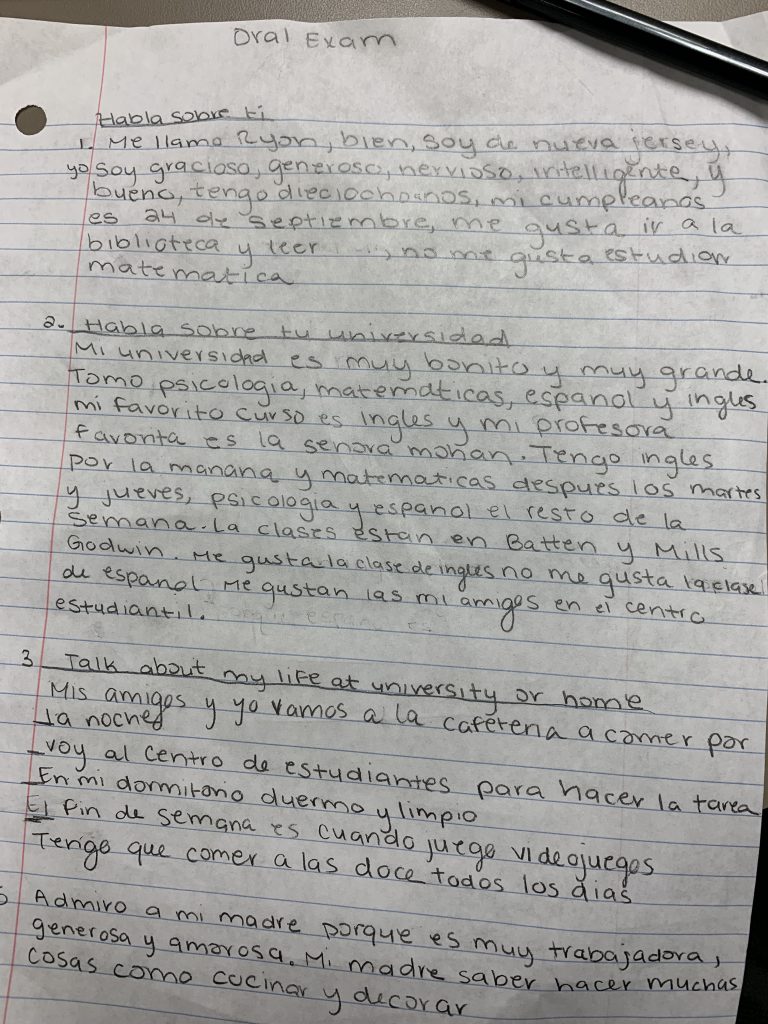 Oral Exam
Habla sobre ti
1. Me llamo Ryon, bien, soy de nueva jersey,
yo soy gracioso, generoso, nervioso, intelligente, y
bueno, tengo dieciochoanos, mi cumpleanos
es 24 de septiembre, me gusta ir a la
biblioteca y leer , no me gusta estudiar
matematica
2. Habla sobre tu universidad
Mi universidad es muy bonito y muy grande.
Tomo psicologia, matemáticas, espanol y ingles
mi favorito curso es Ingles y mi profesora
favorita es la senora mohan. Tengo ingles
por la manana y matematicas despues los martes
y jueves, psicologia y espanol el resto de la
semana. La clases estan en Batten y Mills
Godwin. Me gusta la clase de ingles no me gusta la clase
de espanol Me gustan las mi amigos en el centro
estudiantil.
3 Talk about my life at university or home
Mis amigos y yo vamos a la cafeteria a comer por
la noches
voy al centro de estudiantes para hacer la tarea
En mi dormitorio duermo y limpio
El fin de semana es cuando juego videojuegos
Tengo que comer a las doce todos los dias
5 Admiro a mi madre porque es muy trabajadora,
generosa y amorosa. Mi madre saber hacer muchas
cosas como cocinar y decorar